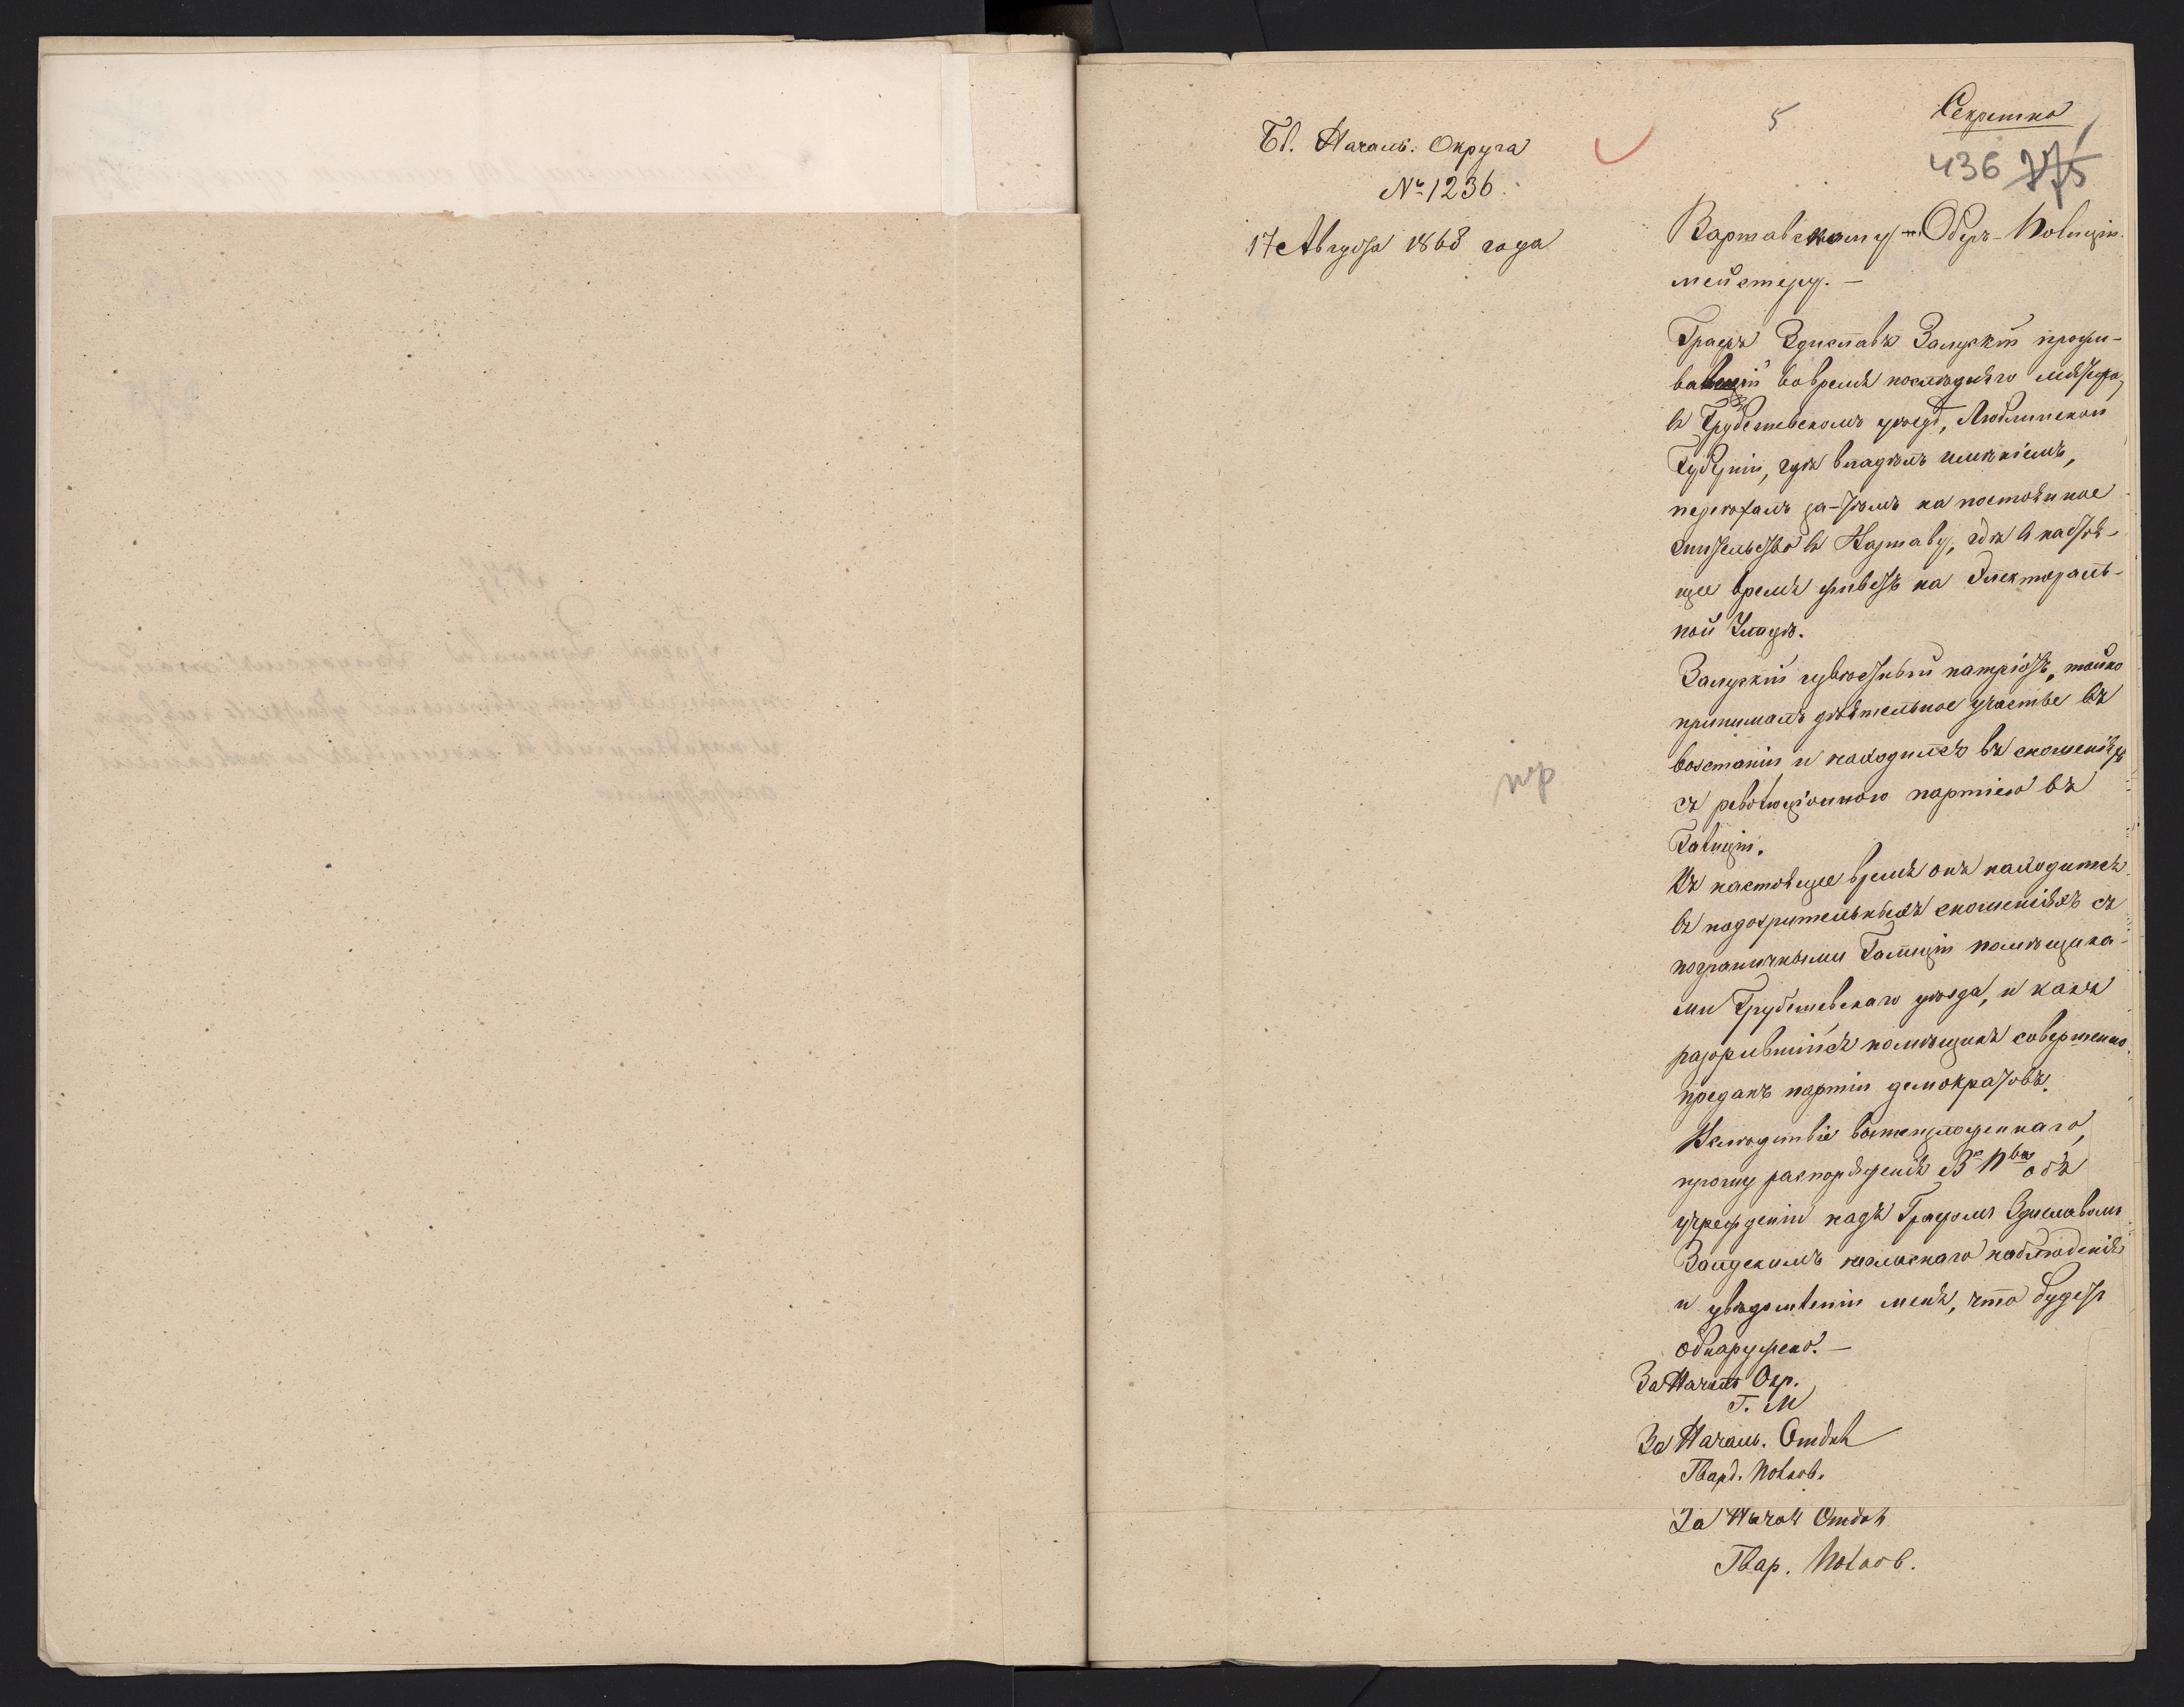 Секретно
5
436 775
Бл. Началь. Округа
№ 1236.
17 Августа 1868 года
Варшавскому Оберъ-Полиций-
мейстеру. —
Графъ Здиславъ Залускій прожи-
вавшій во время последняго мятежа,
въ Грубешевскомъ уѣздѣ, Люблинской
Губерніи, гдѣ владѣлъ имѣніемъ,
переѣхалъ за-тѣмъ на постоянное
жительство въ Варшаву, гдѣ въ настоя-
щее время живетъ на Электораль-
ной Улицѣ.
Залускій патріотъ, тайно
принималъ дѣятельное участіе въ
возстаніи и находился въ сношеніяхъ
съ революціонною партіею въ
Галиціи.
Въ настоящее время онъ находится
въ подозрительныхъ сношеніяхъ съ
пограничными Галиціи помѣщика-
ми Грубешевскаго уѣзда, и какъ
разорившійся помѣщикъ совершенно
преданъ партіи демократовъ.
Вслѣдствіе вышеизложеннаго,
прошу распоряженія В. Пва объ
учрежденіи надъ Графомъ Здиславомъ
Залускимъ негласнаго наблюденія
и увѣдомленіи меня, что будетъ
обнаружено. —
За Началь Окр.
Г. М
За Началь. Отдѣл
Гвард. Полков.
За Начал Отдѣл
Гвар. Полков.
пр